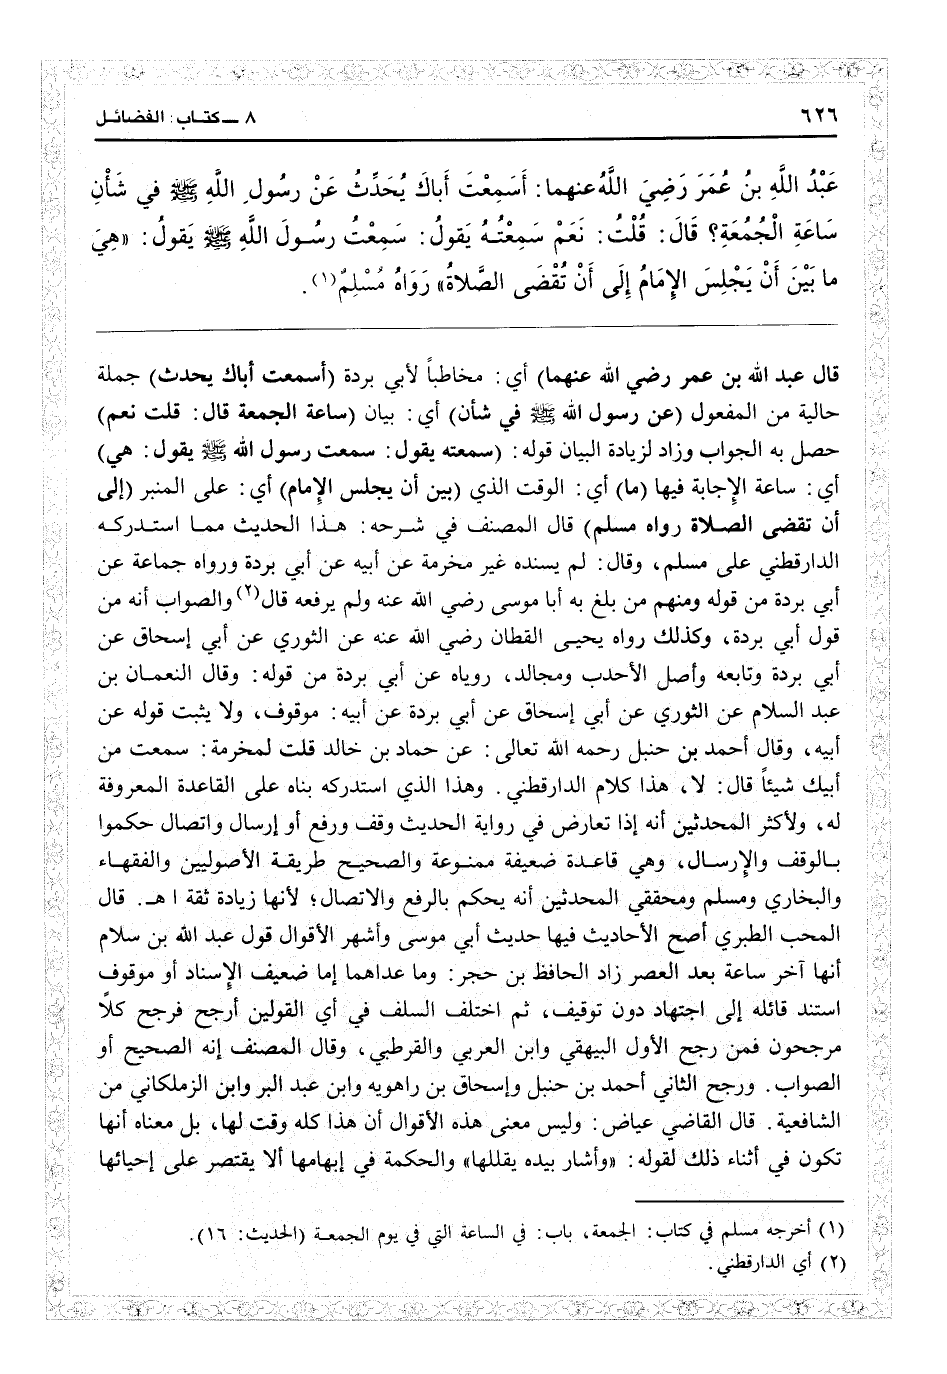 ٦٢٦
٨ ــ كتـاب : الفضائـل
عَبْدُ اللَّهِ بنُ عُمَرَ رَضِيَ اللَّهُ عنهما: أَسَمِعْتَ أَباكَ يُحَدِّثُ عَنْ رسُولِ اللَّهِ ﷺ في شَأْنِ
سَاعَةِ الْجُمُعَةِ؟ قَالَ: قُلْتُ: نَعَمْ سَمِعْتُـهُ يَقولُ: سَمِعْتُ رسُـولَ اللَّهِ ﷺ يَقولُ: «هِيَ
ما بَيْنَ أَنْ يَجْلِسَ الإِمَامُ إِلَى أَنْ تُقْضَى الصَّلاةُ» رَوَاهُ مُسْلِمٌ(١).
قال عبد الله بن عمر رضي الله عنهما) أي: مخاطباً لأبي بردة (أسمعت أباك يحدث) جملة
حالية من المفعول (عن رسول الله ﷺ في شأن) أي: بيان (ساعة الجمعة قال: قلت نعم)
حصل به الجواب وزاد لزيادة البيان قوله: (سمعته يقول: سمعت رسول الله ﷺ يقول: هي)
أي: ساعة الإِجابة فيها (ما) أي: الوقت الذي (بين أن يجلس الإِمام) أي: على المنبر (إلى
أن تقضى الصـلاة رواه مسلم) قال المصنف في شـرحه: هـذا الحديث ممـا استـدركـه
الدارقطني على مسلم، وقال: لم يسنده غير مخرمة عن أبيه عن أبي بردة ورواه جماعة عن
أبي بردة من قوله ومنهم من بلغ به أبا موسى رضي الله عنه ولم يرفعه قال(٢) والصواب أنه من
قول أبي بردة، وكذلك رواه يحيـى القطان رضي الله عنه عن الثوري عن أبي إسحاق عن
أبي بردة وتابعه وأصل الأحدب ومجالد، روياه عن أبي بردة من قوله: وقال النعمـان بن
عبد السلام عن الثوري عن أبي إسحاق عن أبي بردة عن أبيه: موقوف، ولا يثبت قوله عن
أبيه، وقال أحمد بن حنبل رحمه الله تعالى: عن حماد بن خالد قلت لمخرمة: سمعت من
أبيك شيئاً قال: لا، هذا كلام الدارقطني. وهذا الذي استدركه بناه على القاعدة المعروفة
له، ولأكثر المحدثين أنه إذا تعارض في رواية الحديث وقف ورفع أو إرسال واتصال حكموا
بـالوقف والإِرسـال، وهي قاعـدة ضعيفة ممنـوعة والصحيـح طريقـة الأصوليين والفقهـاء
والبخاري ومسلم ومحققي المحدثين أنه يحكم بالرفع والاتصال؛ لأنها زيادة ثقة ا هـ. قال
المحب الطبري أصح الأحاديث فيها حديث أبي موسى وأشهر الأقوال قول عبد الله بن سلام
أنها آخر ساعة بعد العصر زاد الحافظ بن حجر: وما عداهما إما ضعيف الإِسناد أو موقوف
استند قائله إلى اجتهاد دون توقيف، ثم اختلف السلف في أي القولين أرجح فرجح كلاً
مرجحون فمن رجح الأول البيهقي وابن العربي والقرطبي، وقال المصنف إنه الصحيح أو
الصواب. ورجح الثاني أحمد بن حنبل وإسحاق بن راهويه وابن عبد البر وابن الزملكاني من
الشافعية. قال القاضي عياض: وليس معنى هذه الأقوال أن هذا كله وقت لها، بل معناه أنها
تكون في أثناء ذلك لقوله: «وأشار بيده يقللها» والحكمة في إبهامها ألا يقتصر على إحيائها
(١) أخرجه مسلم في كتاب: الجمعة، باب: في الساعة التي في يوم الجمعـة (الحديث: ١٦).
(٢) أي الدارقطني.